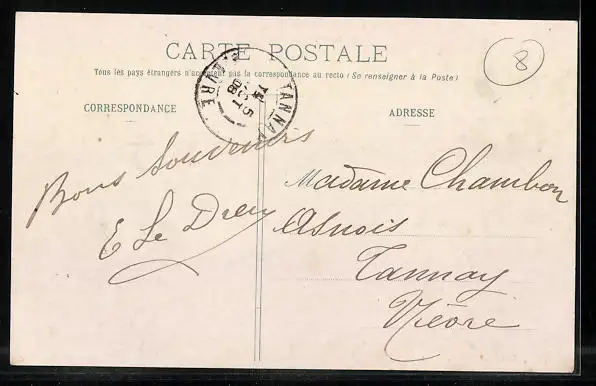 CARTE POSTALE
Tous les pays étrangers n'acceptent pas la correspondance au recto (Se renseigner à la Poste)
8
CORRESPONDANCE
ADRESSE
TANNAY
NIÈVRE
Bons Souvenirs
E Le Dreu
Madame Chambon
Asnois
Tannay
Nièvre